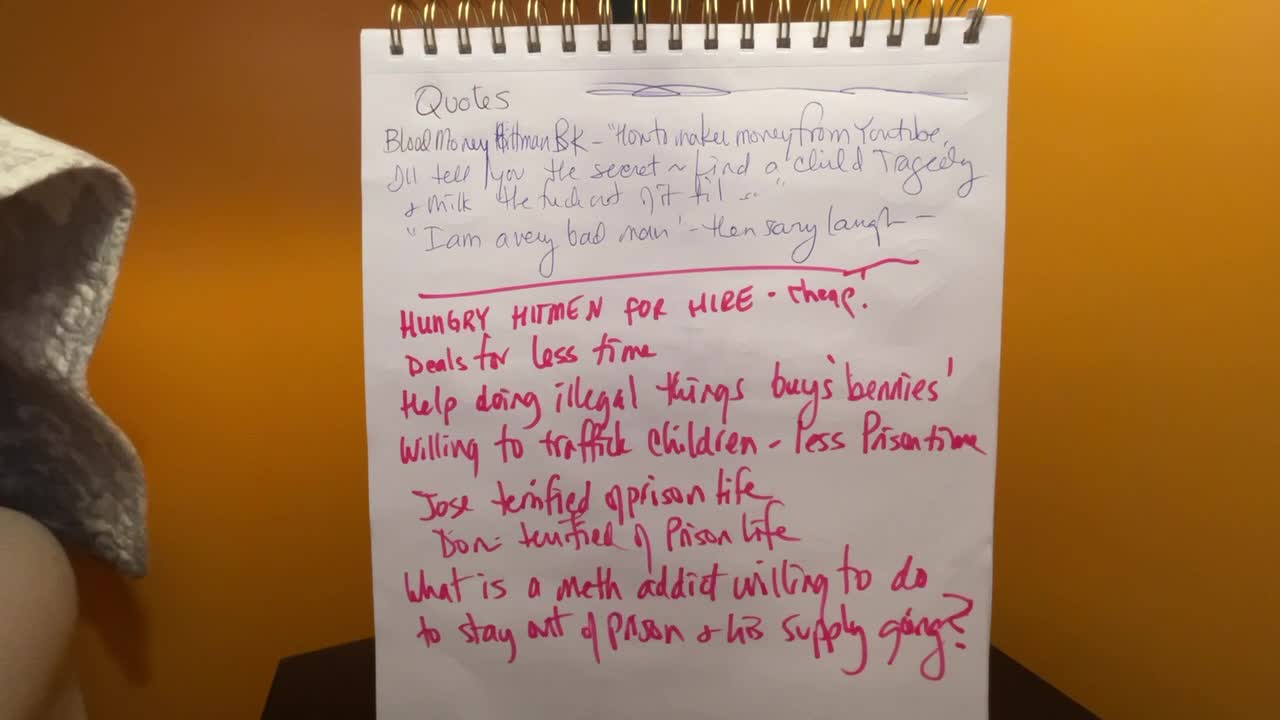 Quotes
Blood Money Hitman BK - "How to make money from Youtube,
I'll tell you the secret ~ find a child Tragedy
& milk the fuck out of it til ..."
"I am a very bad man" - then scary laugh -
HUNGRY HITMEN FOR HIRE - cheap!
Deals for less time
Help doing illegal things buys 'bennies'
Willing to traffick children - less Prison time
Jose terrified of prison life
Don - terrified of Prison Life
What is a meth addict willing to do
to stay out of prison & his supply going?